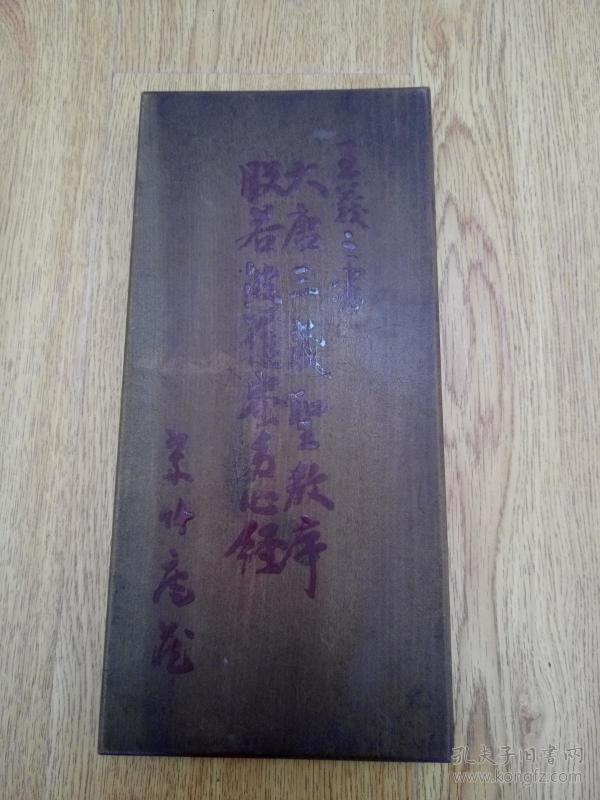 王羲之書
大唐三藏聖教序
般若波羅蜜多心経
竹庵蔵
孔夫子旧書网
www.kongfz.com